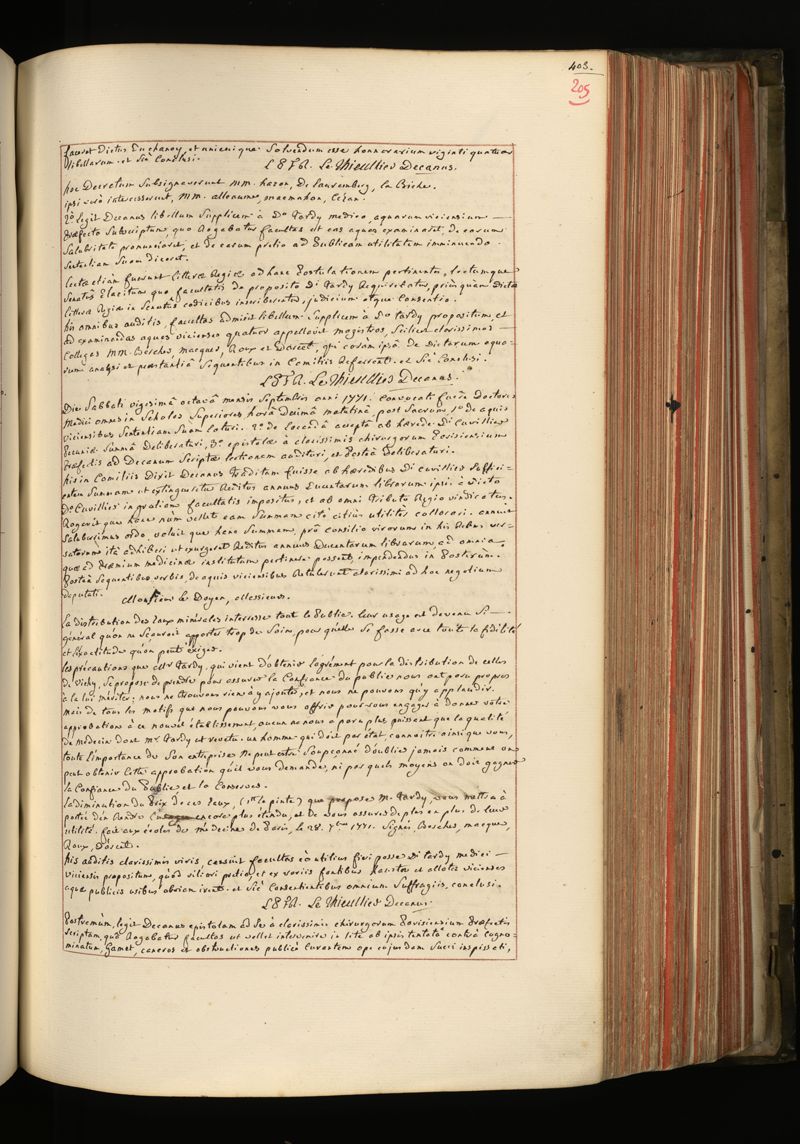 403.
205
faceret Dictus Duchanoy, et unicuique Solvendum esse honnorarium viginti quatuor
libellarum. et Sic Conclusi.
L P F A. Le Thieullier Decanus.
hoc Decretum Subsignaverunt MM. hazon, De Lauremberg, la Briche.
ipsi verò intercesserunt, MM. alleaume, macmahon, Cézan.
2° legit Decanus libellum Supplicem à D° tardy medico, aquarum viciensium
Præfecto Subscriptum, quo Rogabatur facultas ut eas aquas examinaret, de earum
Salubritate pronunciaret, et de earum pretio ad Publicam utilitatem imminuendo
Sententiam Suam diceret.
Lectæ etiam fuerunt litteræ Regiæ ad hanc Postulationem pertinentes,
Senatûs Placitum quo facultatis de proposito Di tardy Requirebatur, priùs quam Dictæ
litteræ Regiæ in Senatûs codicibus inscriberentur, judicium atque Consensio.
his omnibus auditis, facultas admisit libellum Supplicem à D° tardy propositum, et
ad examinandas aquas vicienses quatuor appellavit magistros, Scilicet clarissimos
Collegas MM. Bercher, macquer, Roux et Darcet, qui coràm ipsâ de Dictarum aqua-
rum analysi et præstantiâ Sequentibus in Comitiis Referrent. et Sic Conclusi.
L P F A. Le Thieullier Decanus.
Die Sabbati vigesimâ octavâ mensis Septembris anni 1771. Convocati fuêre Doctores
Medici omnes in Scholas Superiores horâ Decimâ matutinâ post Sacrum 1° de aquis
viciensibus Sententiam Suam laturi. 2° de Locandâ acceptâ ab hærede Di Cuvillier
Pecuniæ Summâ Deliberaturi, 3° epistolæ à clarissimis chirurgorum Parisiensium
Præfectis ad Decanum Scriptæ lectionem audituri, et Posteà Deliberaturi.
his in Comitiis Dixit Decanus Traditam fuisse ab hæredibus Di Cuvillier Suffici-
entem Summam ut extingueretur Reditus annuus Ducentarum librarum ipsi à Dicto
D° Cuvillier in gratiam facultatis impositus, et ab omni Tributo Regio vindicatus.
Rogavit que hanc num vellet eam Summam citò citiùs utiliter collocari. annuit
Saluberrimus ordo, voluit que hanc Summam, pro consilio virorum in his Rebus ver-
satorum ità adhiberi ut exurgeret Reditus annuus Ducentarum librarum ad omnia,
quæ ad Præmium medicinæ institutum pertinere possent, impendendus in Posterum.
Posteà Sequentibus verbis, de aquis viciensibus Retulerunt clarissimi ad hoc negotium
Deputati.
Monsieur le Doyen, Messieurs.
la distribution des Eaux minérales interesse tout le Public. leur usage est devenu Si
général qu'on ne Sçauroit apporter trop de Soins, pour qu'elle Se fasse avec toute la fidélité
et l'exactitude qu'on peut exiger.
les précautions que Mr tardy, qui vient d'obtenir l'agrément pour la distribution de celles
de Vichy, Se propose de prendre pour assurer la Confiance du public nous ont paru propres
à la lui mériter; nous ne trouvons rien à y ajouter, et nous ne pouvons qu'y applaudir.
mais de tous les motifs que nous pouvons vous offrir pour vous engager à donner votre
approbation à ce nouvel établissement, aucun ne nous a paru plus puissant que la qualité
de médecin dont mr tardy est revetu. un homme qui doit par état connoitre ainsi que vous,
toute l'importance de Son entreprise Ne peut etre Soupçonné d'oublier jamais comment on
peut obtenir Cette approbation qu'il vous demande, ni par quels moyens on doit gagner
la Confiance du Public et la Conserver.
la diminution du Prix de ces Eaux, (1tt la pinte) que propose M. tardy, vous mettra à
portée d'en Rendre l'usage encore plus étendu, et de vous assurer de plus en plus de leur
utilité. fait aux écoles de médecine de Paris, le 28. 7bre 1771. Signés, Bercher, macquer,
Roux, D'arcet.
his auditis clarissimis viris, censuit facultas eò utilius fieri posse Di tardy medici
viciensis propositum, quòd viliori pretio, et ex variis fontibus haustæ et allatæ vicienses
aquæ publicis usibus obviam irent. et Sic Consentientibus omnium Suffragiis, conclusi.
L P F A. Le Thieullier Decanus.
Postremùm, legit Decanus epistolam ad Se à clarissimis chirurgorum Parisiensium Præfectis
Scriptam, quâ Rogabatur facultas ut vellet intervenire in lite ab ipsis tentatâ contrà Cogno-
minatum, Gamet, cancros et obstructiones publicè Curantem ope cujusdam Succi inspissati,